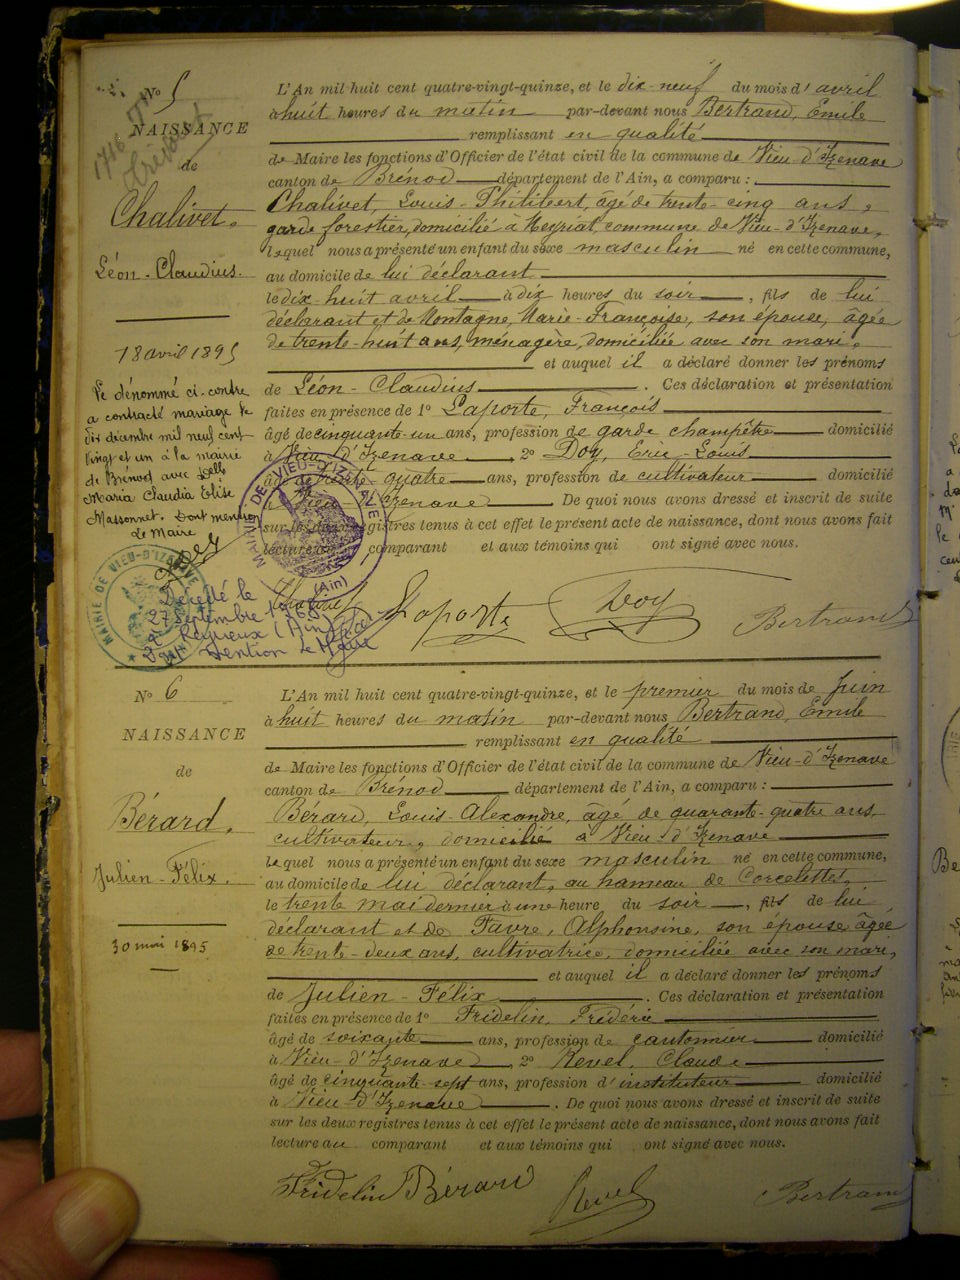 No 5
NAISSANCE
de
Chalivet,
Léon-Claudius.
18 avril 1895
Le dénommé ci-contre
a contracté mariage le
dix décembre mil neuf cent
vingt et un à la mairie
de Brénod avec Delle
Maria Claudia Elise
Massonnet. Dont mention
Le Maire
Décédé le
27 septembre
Mention Le Maire
MAIRIE DE VIEU-D'IZENAVE
MAIRIE DE VIEU-D'IZENAVE (Ain)
L'An mil huit cent quatre-vingt-quinze, et le dix-neuf du mois d'avril
à huit heures du matin par-devant nous Bertrand, Emile
remplissant en qualité
de Maire les fonctions d'Officier de l'état civil de la commune de Vieu-d'Izenave
canton de Brénod département de l'Ain, a comparu :
Chalivet, Louis-Philibert, âgé de trente-cinq ans,
garde forestier, domicilié à Heyriat, commune de Vieu-d'Izenave,
lequel nous a présenté un enfant du sexe masculin né en cette commune,
au domicile de lui déclarant
le dix-huit avril à dix heures du soir, fils de lui
déclarant et de Montagne, Marie-Françoise, son épouse, âgée
de trente-huit ans, ménagère, domiciliée avec son mari,
et auquel il a déclaré donner les prénoms
de Léon-Claudius. Ces déclaration et présentation
faites en présence de 1º Laporte, François
âgé de cinquante-un ans, profession de garde champêtre domicilié
à Vieu-d'Izenave, 2º Doy, Eric-Louis
âgé de trente quatre ans, profession de cultivateur domicilié
à Vieu-d'Izenave. De quoi nous avons dressé et inscrit de suite
sur les deux registres tenus à cet effet le présent acte de naissance, dont nous avons fait
lecture au comparant et aux témoins qui ont signé avec nous.
Laporte Doy Bertrand
No 6
NAISSANCE
de
Bérard,
Julien-Félix.
30 mai 1895
L'An mil huit cent quatre-vingt-quinze, et le premier du mois de Juin
à huit heures du matin par-devant nous Bertrand, Emile
remplissant en qualité
de Maire les fonctions d'Officier de l'état civil de la commune de Vieu-d'Izenave
canton de Brénod département de l'Ain, a comparu :
Bérard, Louis-Alexandre, âgé de quarante-quatre ans,
cultivateur, domicilié à Vieu-d'Izenave
lequel nous a présenté un enfant du sexe masculin né en cette commune,
au domicile de lui déclarant, au hameau de Corcelette,
le trente mai dernier à une heure du soir, fils de lui
déclarant et de Favre, Alphonsine, son épouse âgée
de trente-deux ans, cultivatrice, domiciliée avec son mari,
et auquel il a déclaré donner les prénoms
de Julien-Félix. Ces déclaration et présentation
faites en présence de 1º Fridelin, Frédéric
âgé de soixante ans, profession de cantonnier domicilié
à Vieu-d'Izenave, 2º Revel, Claude
âgé de cinquante-sept ans, profession d'instituteur domicilié
à Vieu-d'Izenave. De quoi nous avons dressé et inscrit de suite
sur les deux registres tenus à cet effet le présent acte de naissance, dont nous avons fait
lecture au comparant et aux témoins qui ont signé avec nous.
Fridelin Bérard Revel Bertrand